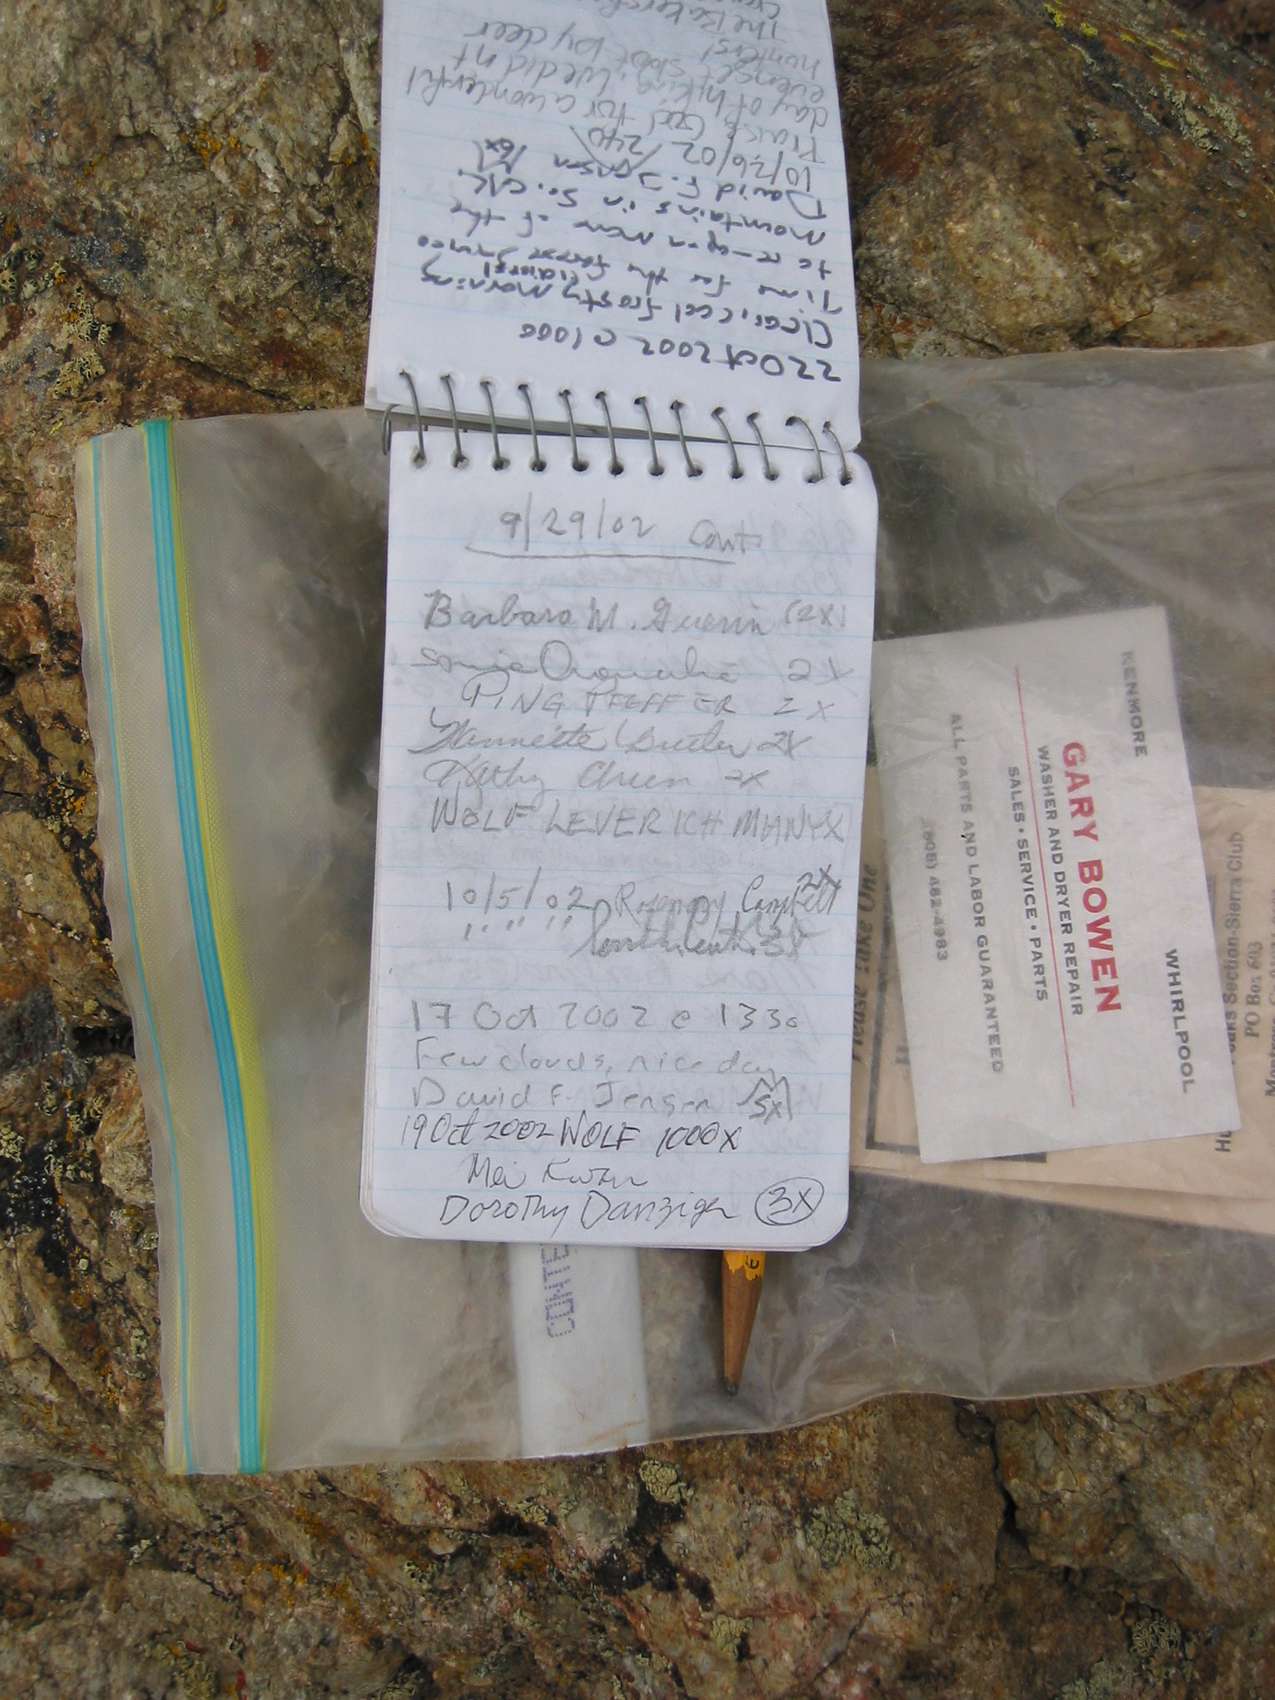 The Bakersfi
hunters!
even get shot by deer
day of hiking, we didn't
Praise God for a wonderful
10/26/02 / 240
David F. Jensen 6x
mountains in So. CA.
to re-open more of the
Time for the forest
Clear, cool frosty morning
22 Oct 2002 @ 1000
9/29/02 Cont.
Barbara M. Guerin (2X)
Sonia 2X
PING PFEFFER 2X
Jeannette Butler 2X
Kathy 2X
WOLF LEVERICH MANYX
10/5/02 Rosemary Campbell 2X
" " " 3X
17 Oct 2002 @ 1330
Few clouds, nice day
David F. Jensen 5X
19 Oct 2002 WOLF 1000X
Mei Kwan
Dorothy Danziger 3X
CONTE
KENMORE
WHIRLPOOL
GARY BOWEN
WASHER AND DRYER REPAIR
SALES • SERVICE • PARTS
ALL PARTS AND LABOR GUARANTEED
(805) 462-4983
Please Take One
Section-Sierra Club
PO Box 603